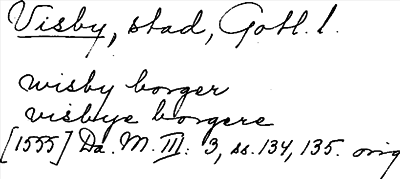 Visby, stad, Gotl. l.
wisby borger
visbye borgere
[1555] Da. M. III: 3, ss. 134, 135. orig